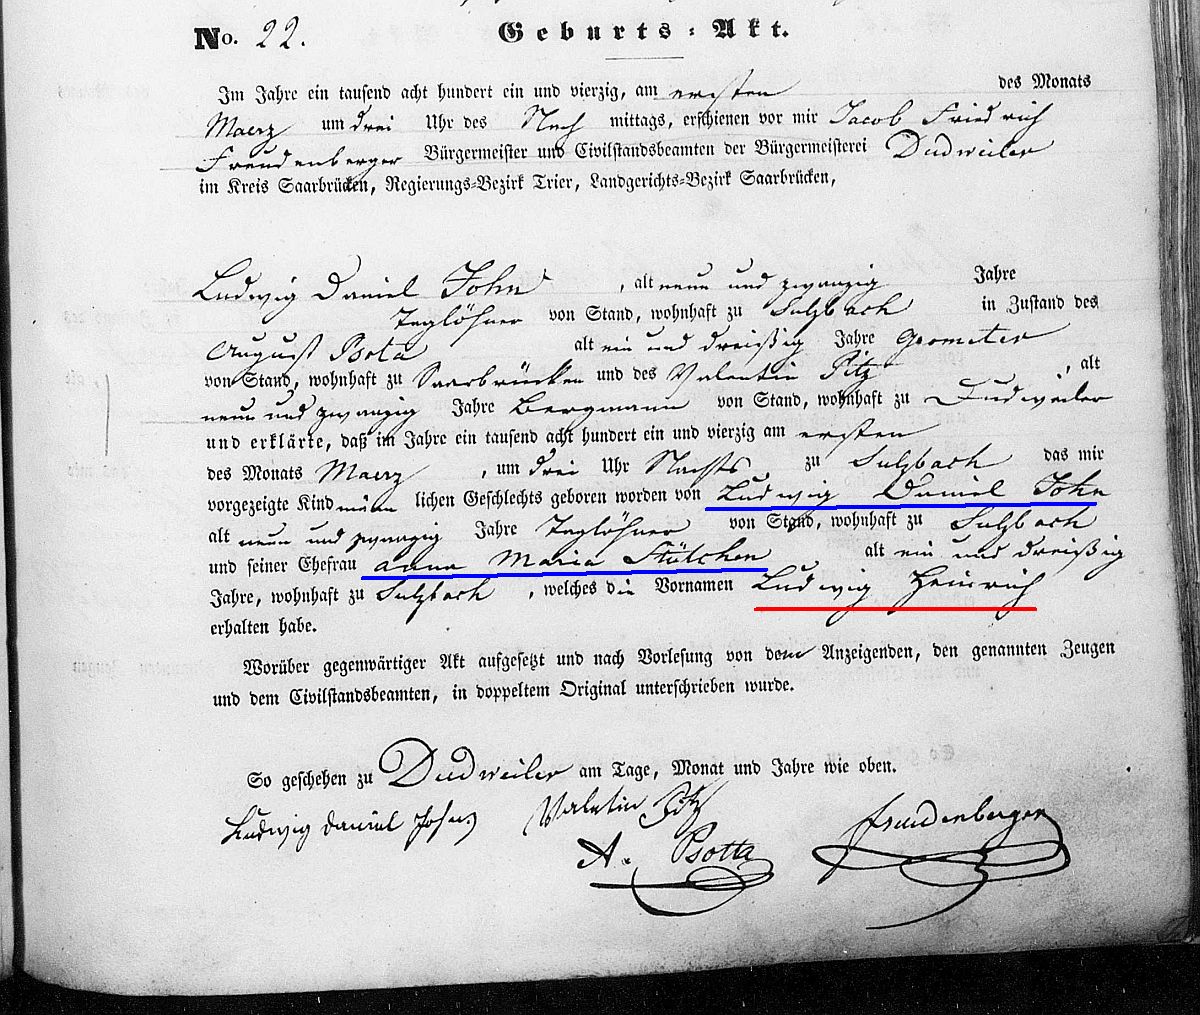 No. 22. Geburts-Akt.
Im Jahre ein tausend acht hundert ein und vierzig, am ersten des Monats
Maerz um drei Uhr des Nach mittags, erschienen vor mir Jacob Friedrich
Freudenberger Bürgermeister und Civilstandsbeamten der Bürgermeisterei Dudweiler
im Kreis Saarbrücken, Regierungs-Bezirk Trier, Landgerichts-Bezirk Saarbrücken,
Ludwig Daniel John, alt neun und zwanzig Jahre
Taglöhner von Stand, wohnhaft zu Sulzbach in Zustand des
August Psota alt ein und dreißig Jahre Geometer
von Stand, wohnhaft zu Saarbrücken und des Valentin Pitz, alt
neun und zwanzig Jahre Bergmann von Stand, wohnhaft zu Dudweiler
und erklärte, daß im Jahre ein tausend acht hundert ein und vierzig am ersten
des Monats Maerz, um drei Uhr Nachts zu Sulzbach das mir
vorgezeigte Kind männlichen Geschlechts geboren worden von Ludwig Daniel John
alt neun und zwanzig Jahre Taglöhner von Stand, wohnhaft zu Sulzbach
und seiner Ehefrau Anna Maria alt ein und dreißig
Jahre, wohnhaft zu Sulzbach, welches die Vornamen Ludwig Heinrich
erhalten habe.
Worüber gegenwärtiger Akt aufgesetzt und nach Vorlesung von dem Anzeigenden, den genannten Zeugen
und dem Civilstandsbeamten, in doppeltem Original unterschrieben wurde.
So geschehen zu Dudweiler am Tage, Monat und Jahre wie oben.
Ludwig Daniel John Valentin Pitz Freudenberger
A. Psotta